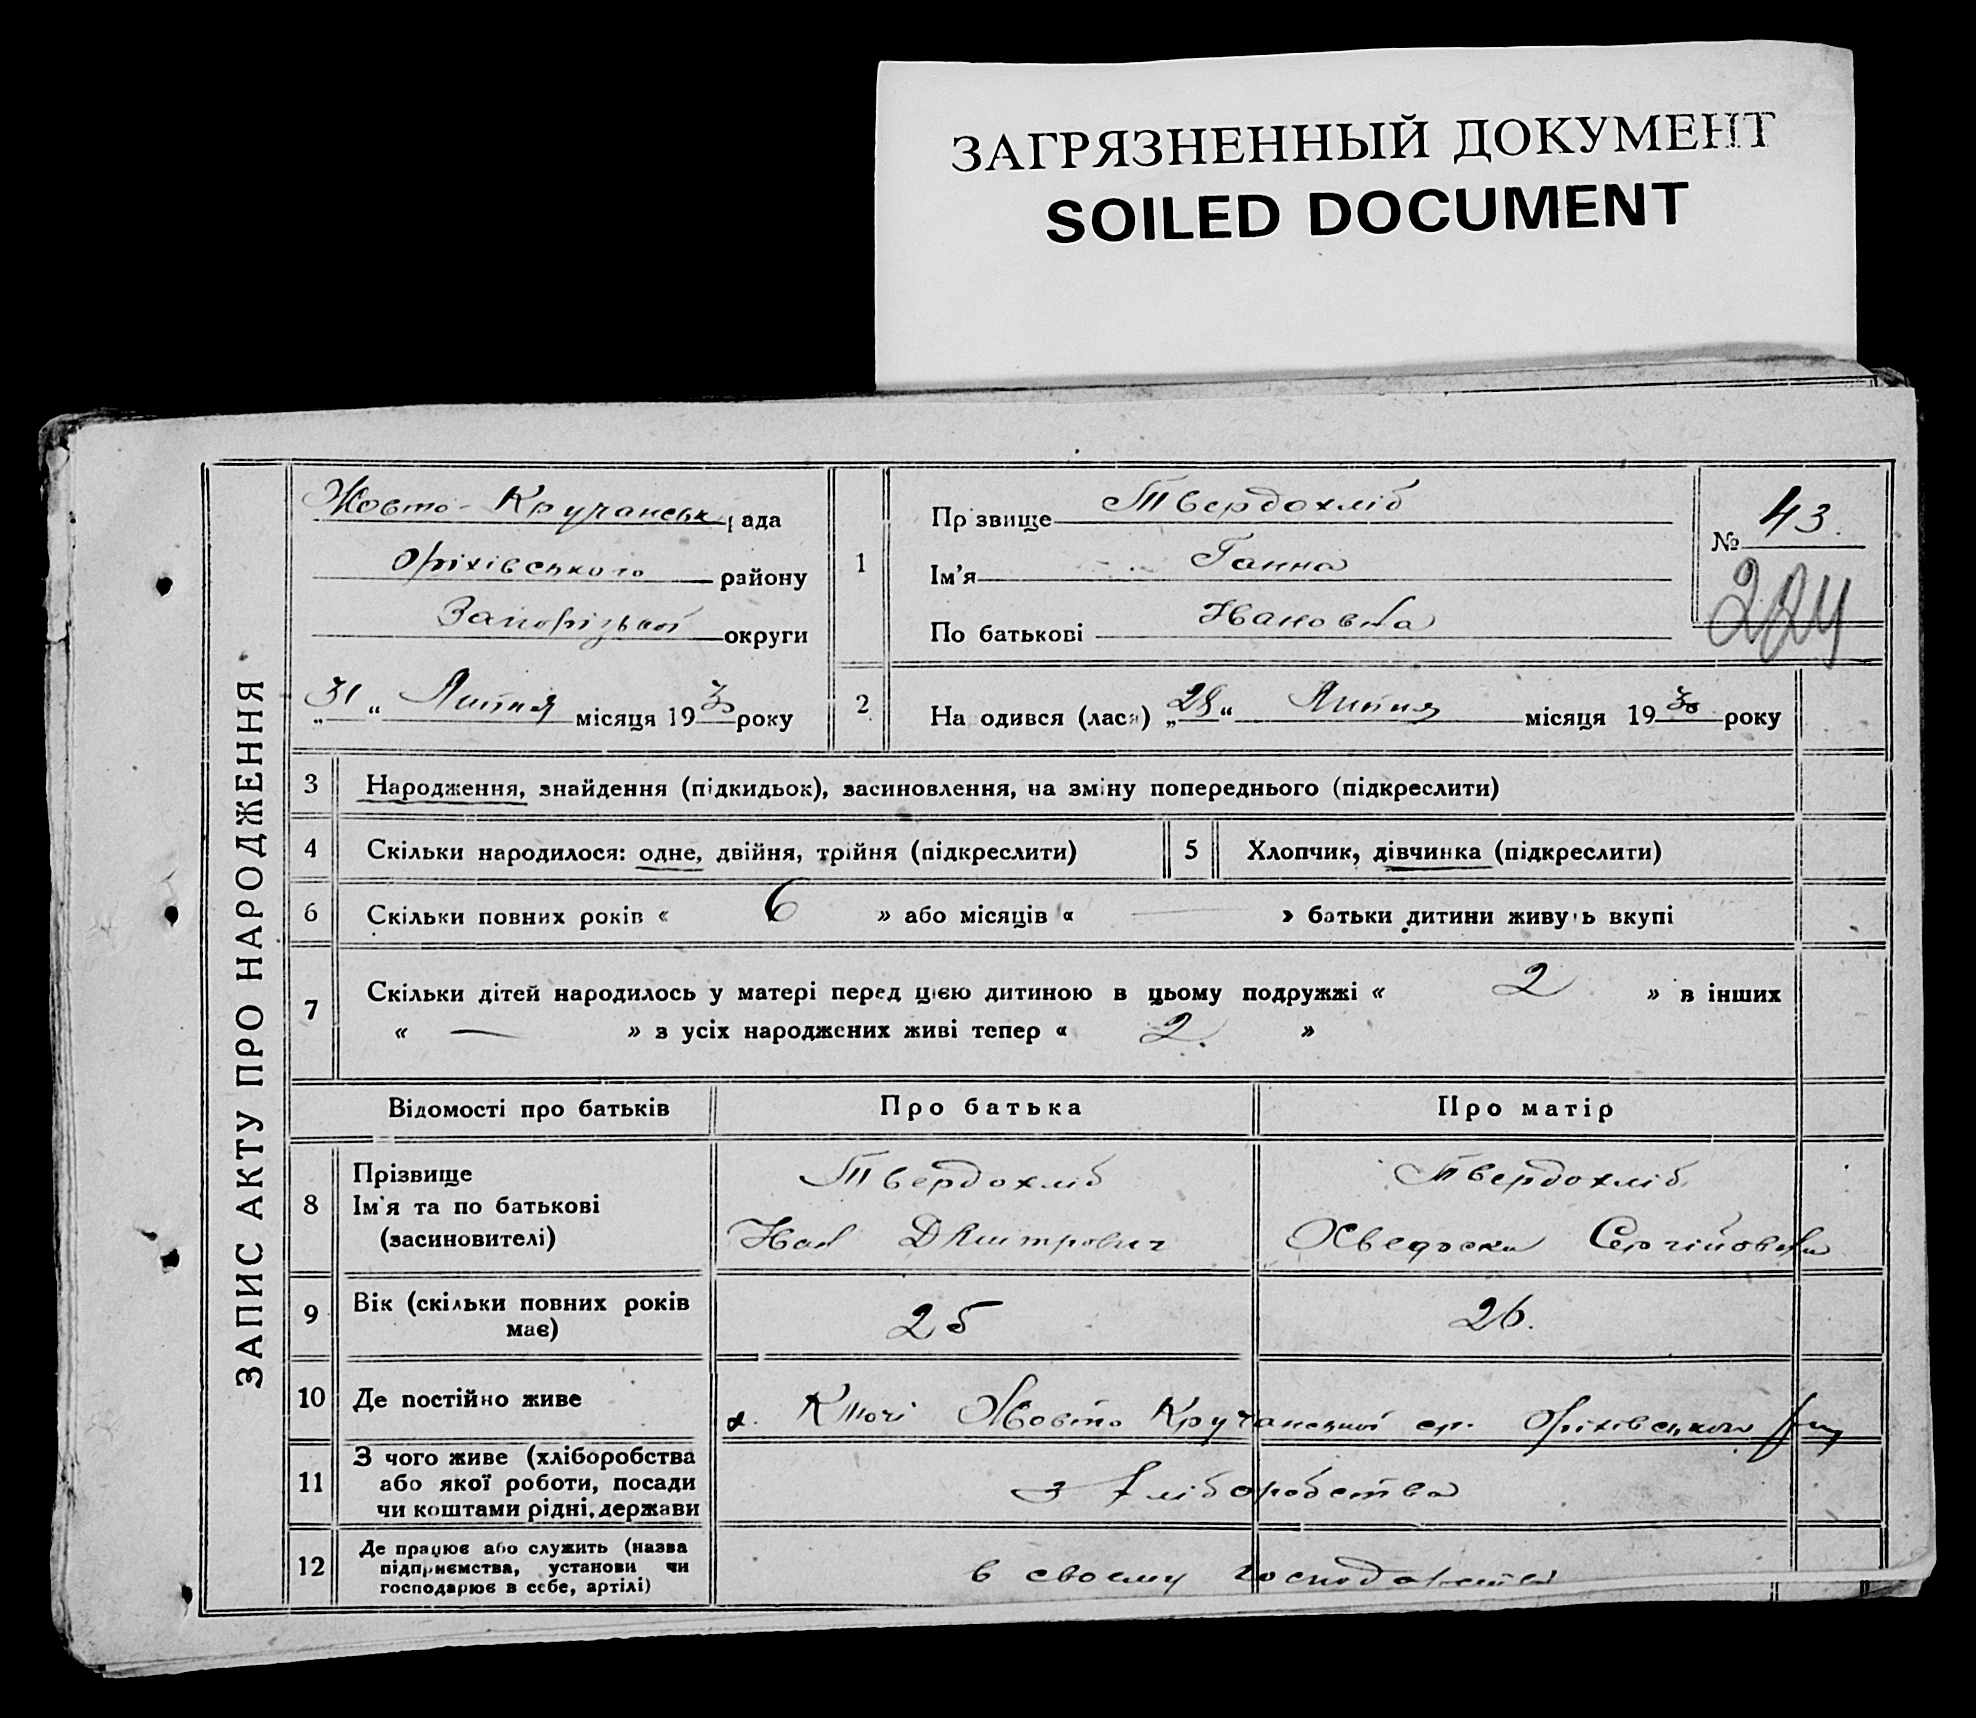 ЗАГРЯЗНЕННЫЙ ДОКУМЕНТ
SOILED DOCUMENT
ЗАПИС АКТУ ПРО НАРОДЖЕННЯ
Жовто-Кручанськ рада
Оріхівського району
Запорізької округи
„31“ Липня місяця 1930 року
1
Прізвище Твердохліб
Ім'я Ганна
По батькові Ивановна
№ 43.
224
2
Народився (лася) „28“ Липня місяця 1930 року
3 Народження, знайдення (підкидьок), засиновлення, на зміну попереднього (підкреслити)
4 Скільки народилося: одне, двійня, трійня (підкреслити)
5 Хлопчик, дівчинка (підкреслити)
6 Скільки повних років « 6 » або місяців « — » батьки дитини живуть вкупі
7 Скільки дітей народилось у матері перед цією дитиною в цьому подружжі « 2 » в інших
« — » з усіх народжених живі тепер « 2. »
Відомості про батьків Про батька Про матір
8 Прізвище
Ім'я та по батькові
(засиновителі)
Твердохліб
Дмитрович
Твердохліб
Сергійовна
9 Вік (скільки повних років
має)
25
26.
10 Де постійно живе
х. Ключі Жовто Кручанської ср. Оріхівського р-ну
11 З чого живе (хліборобства
або якої роботи, посади
чи коштами рідні, держави
з хліборобства
12 Де працює або служить (назва
підприємства, установи чи
господарює в себе, артілі)
в своему господарстві